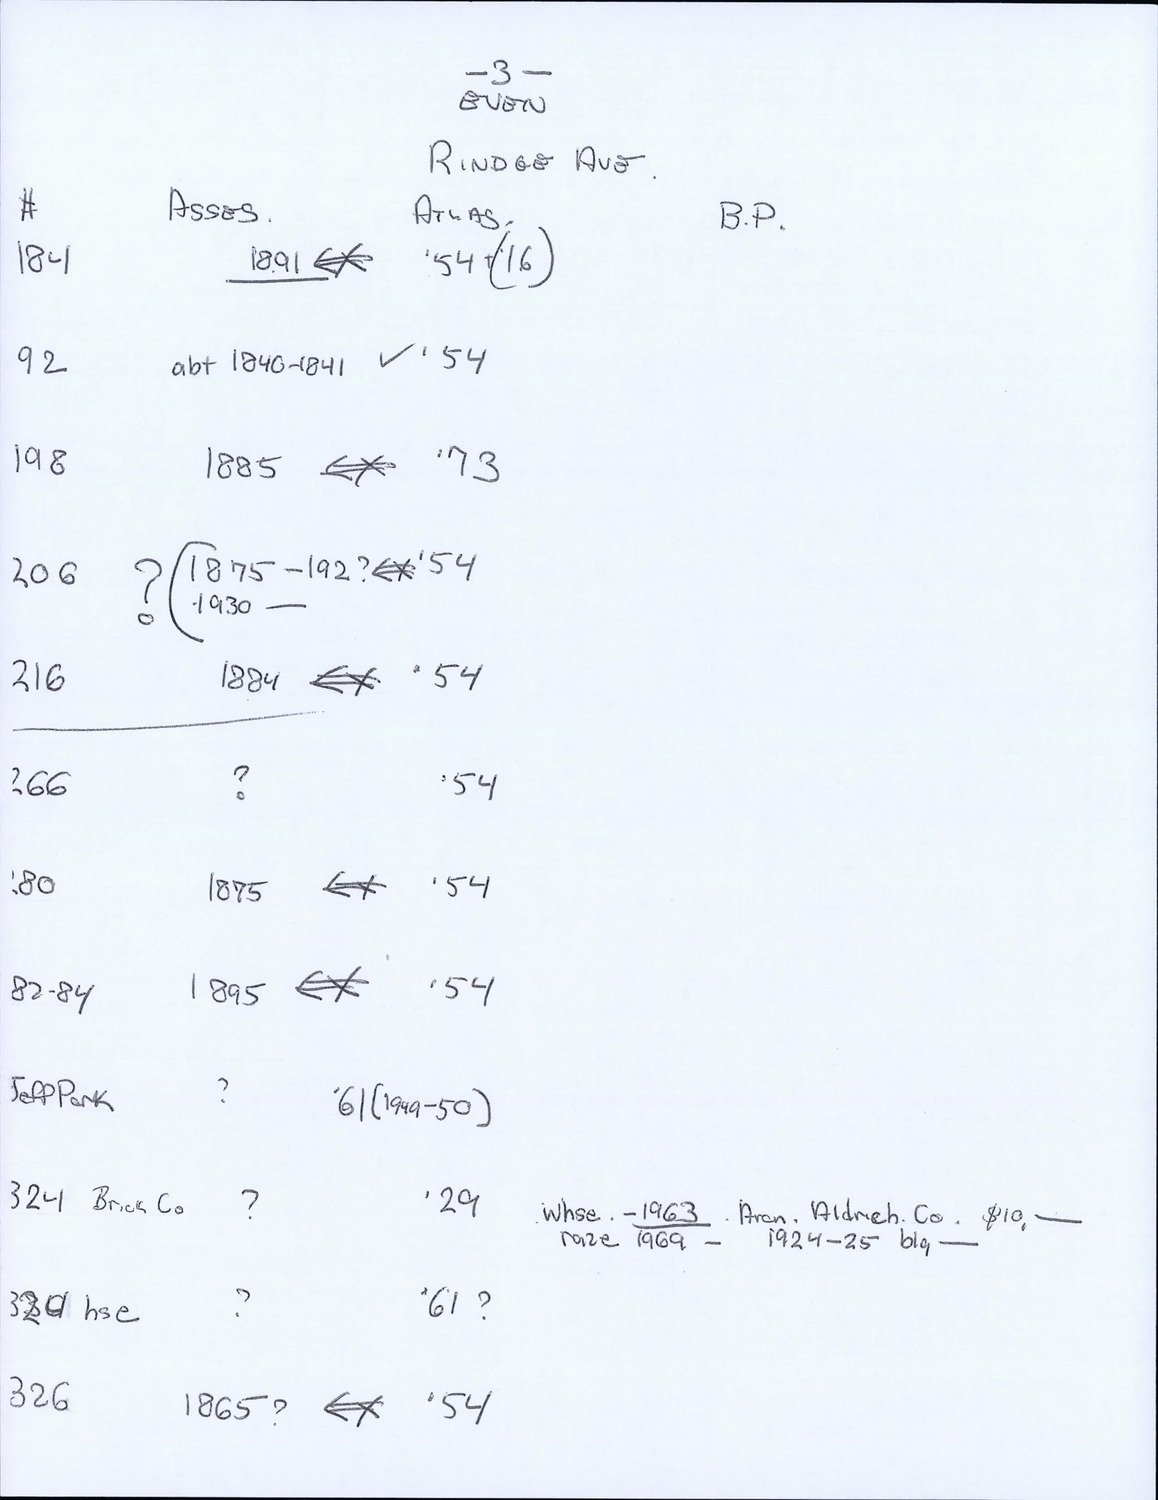 -3-
EVEN
RINDGE AVE.
# ASSES. ATLAS. B.P.
184 1891 '54 + (16)
92 abt 1840-1841 ✓ '54
198 1885 '73
206 ? (1875-192? '54
1930 —
216 1884 '54
266 ? '54
80 1875 '54
82-84 1895 '54
Jeff Park ? '61 (1949-50)
324 Brick Co ? '29 Whse. - 1963 . Aldrich. Co. $10, —
raze 1969 - 1924-25 blg —
hse ? '61 ?
326 1865? '54